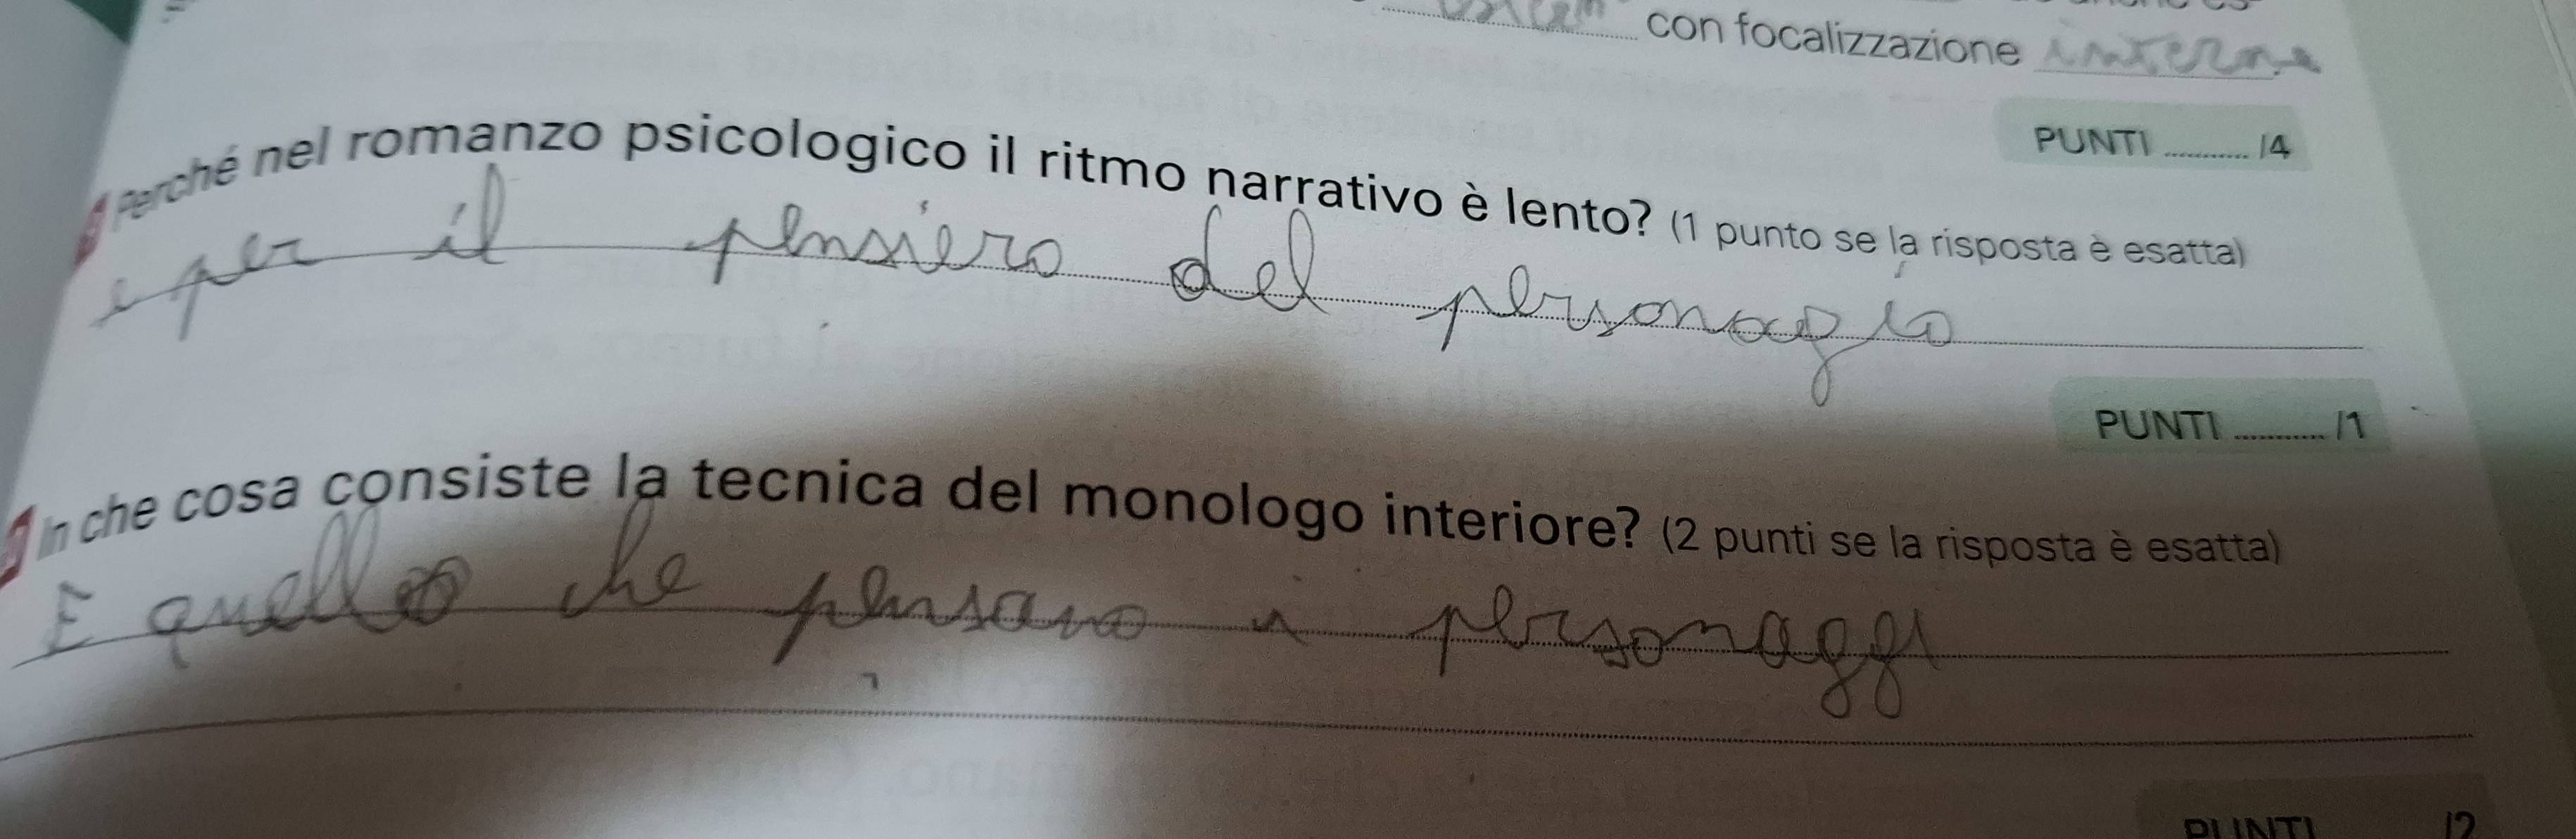 con focalizzazione interna
PUNTI .......... /4
Perché nel romanzo psicologico il ritmo narrativo è lento? (1 punto se la risposta è esatta)
e per il pensiero del personagio
PUNTI .......... /1
In che cosa consiste la tecnica del monologo interiore? (2 punti se la risposta è esatta)
E quello che pensano i personaggi
PUNTI /2